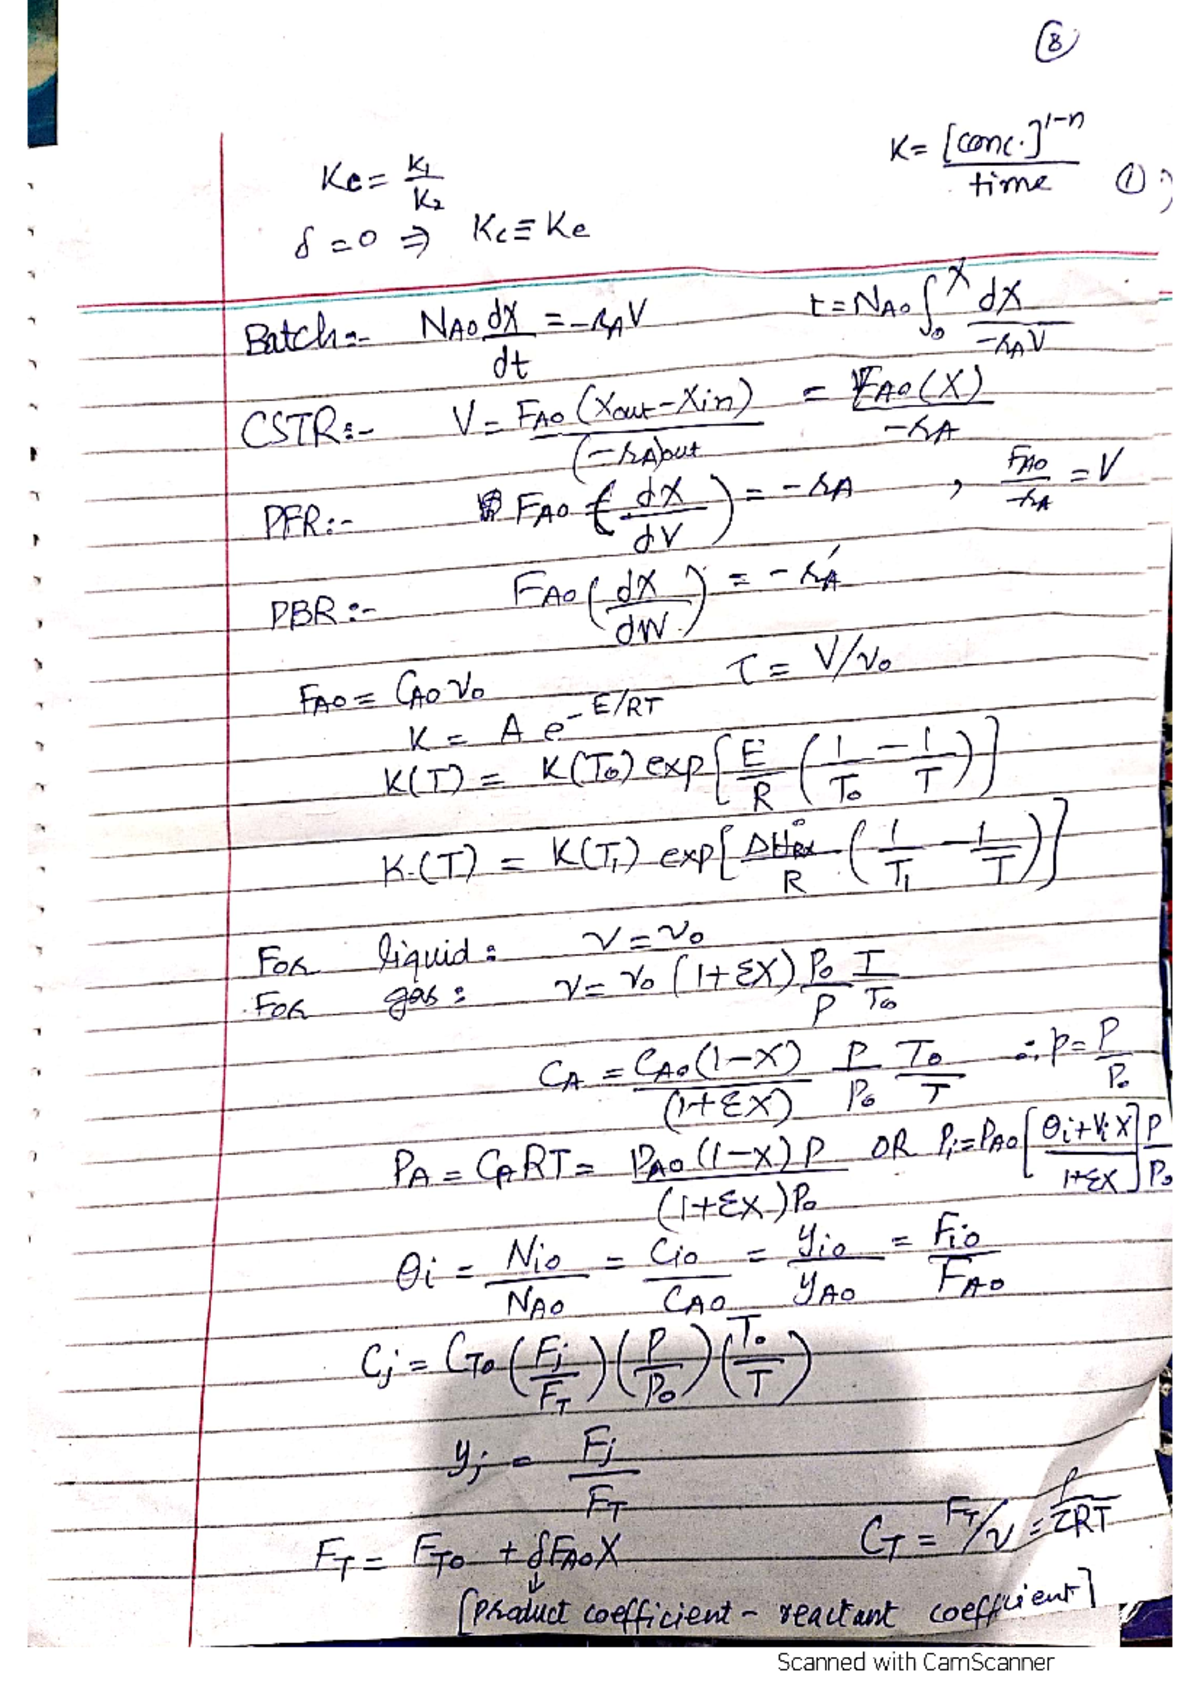 8
K = [conc.]^1-n / time  ①
Ke = K1/K2
δ = 0 ⇒ Kc ≡ Ke
Batch:- NA0 dX/dt = -rAV  t = NA0 ∫₀^X dX/-rAV
CSTR:- V = FA0 (Xout - Xin)/(-rA)out = FA0(X)/-rA
PFR:- FA0 (dX/dV) = -rA , FA0/-rA = V
PBR:- FA0 (dX/dW) = -rA′
FA0 = CA0 v0  τ = V/v0
K = A e^-E/RT
K(T) = K(T0) exp[E/R (1/T0 - 1/T)]
K(T) = K(T1) exp[ΔH°Rx/R (1/T1 - 1/T)]
For liquid: v = v0
For gas: v = v0 (1+εX) P0/P T/T0
CA = CA0(1-X)/(1+εX) P/P0 T0/T  ∴ p = P/P0
PA = CART = PA0(1-X)P/(1+εX)P0 OR Pi = PA0 [θi+ViX/1+εX] P/P0
θi = Ni0/NA0 = Ci0/CA0 = yi0/yA0 = Fi0/FA0
Cj = CT0 (Fj/FT)(P/P0)(T0/T)
yj = Fj/FT
FT = FT0 + δFA0X  CT = FT/v = P/ZRT
↓
[Product coefficient - reactant coefficient]
Scanned with CamScanner